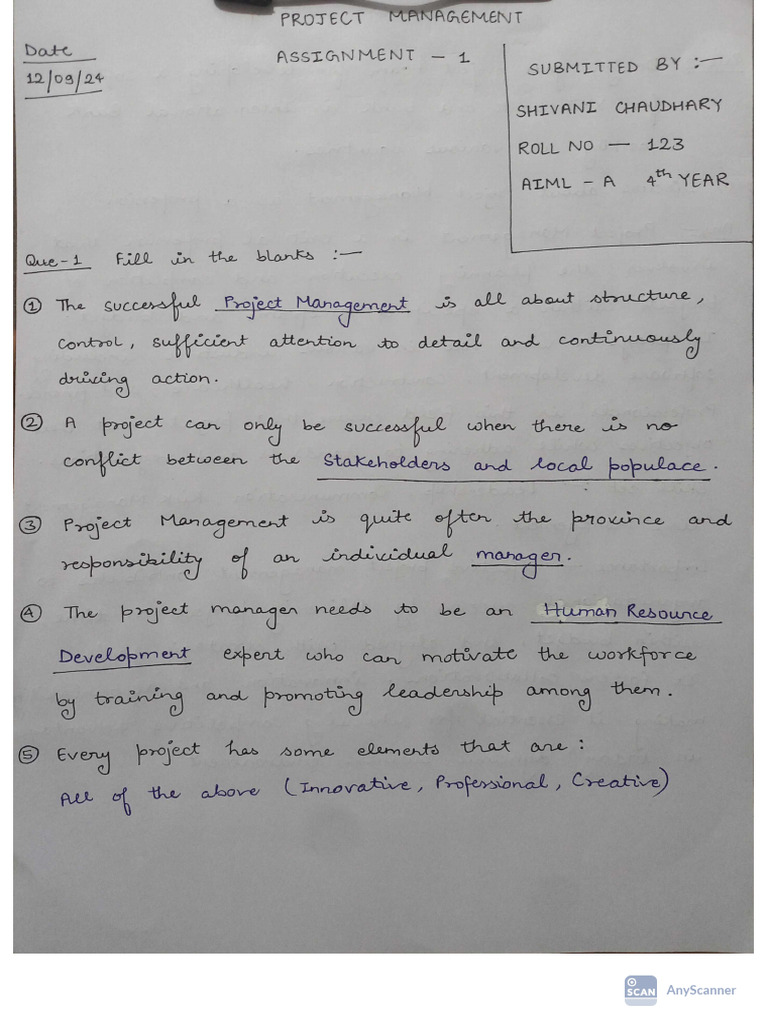 PROJECT MANAGEMENT
ASSIGNMENT - 1
Date
12/09/24
SUBMITTED BY :-
SHIVANI CHAUDHARY
ROLL NO - 123
AIML - A 4th YEAR
Que-1 Fill in the blanks :-
① The successful Project Management is all about structure,
control, sufficient attention to detail and continuously
driving action.
② A project can only be successful when there is no
conflict between the Stakeholders and local populace.
③ Project Management is quite often the province and
responsibility of an individual manager.
④ The project manager needs to be an Human Resource
Development expert who can motivate the workforce
by training and promoting leadership among them.
⑤ Every project has some elements that are :
All of the above (Innovative, Professional, Creative)
SCAN AnyScanner